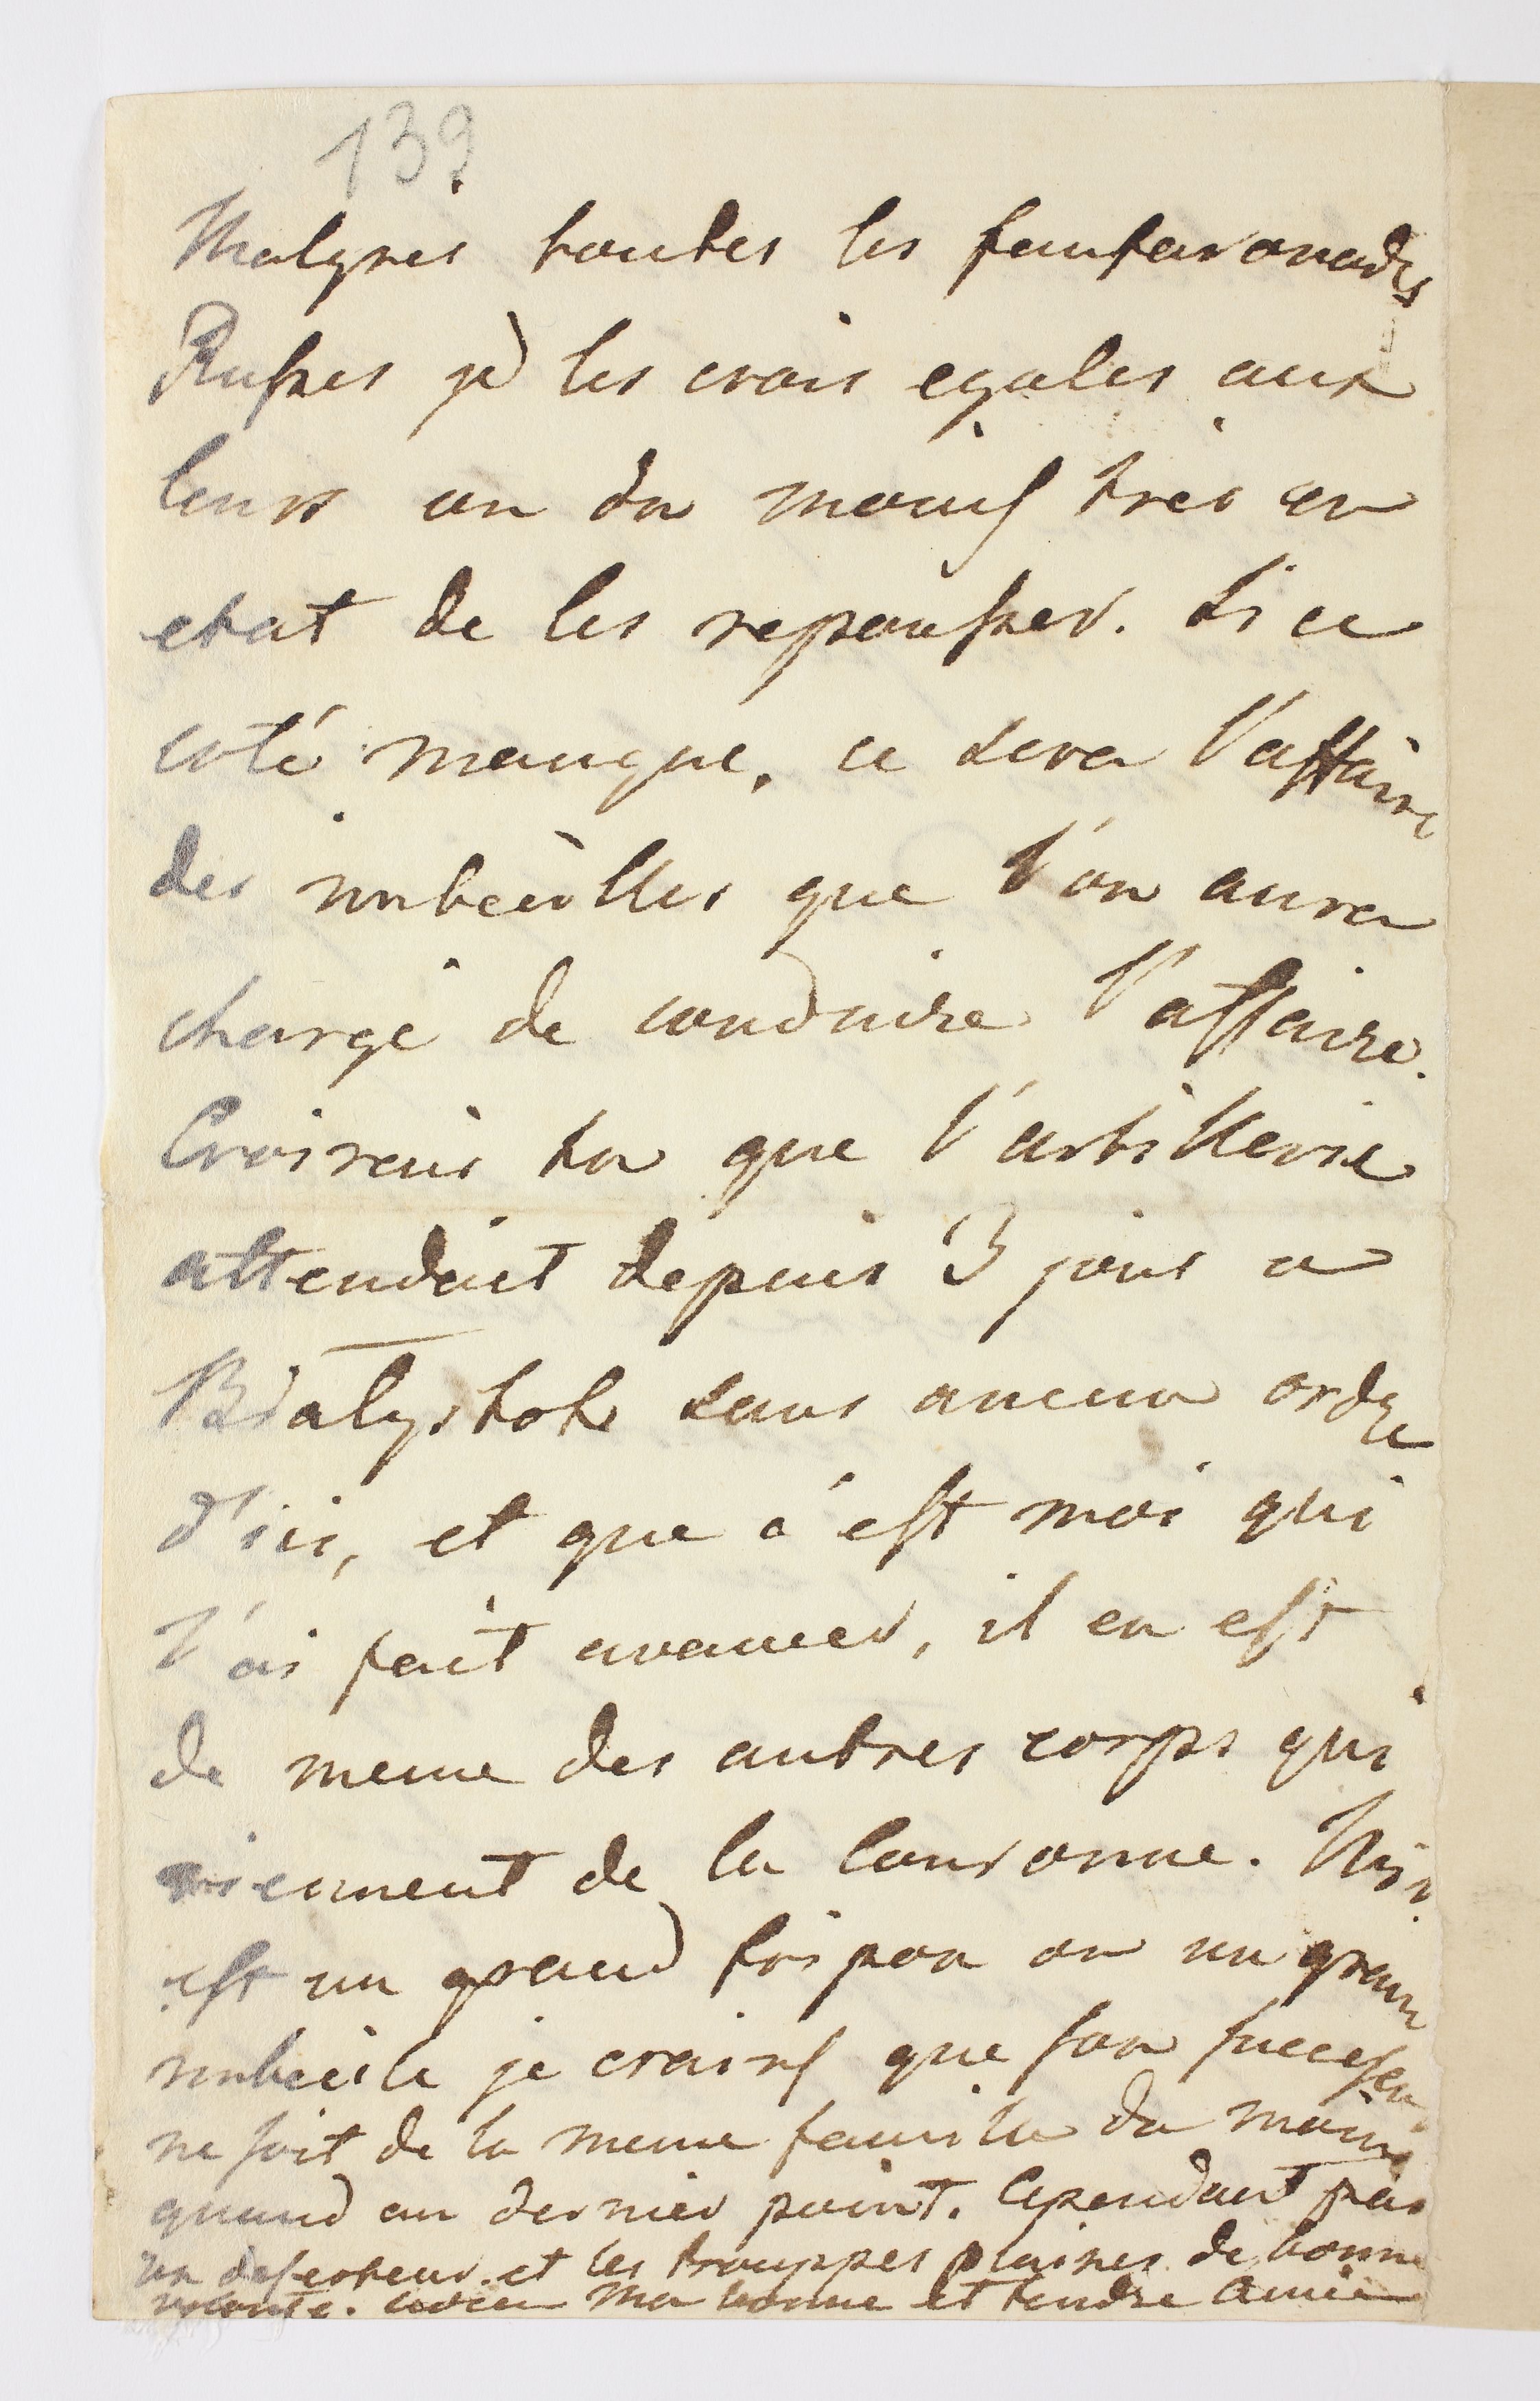 139
Malgres toutes les fanfaronades
Russes je les crois egales aux
leurs ou du moins tres en
etat de les repousser. Si ce
coté manque, ce sera l'affaire
des imbecilles que l'on aura
chargé de conduire l'affaire.
Croirais tu que l'artillerie
attendait depuis 3 jours a
Bialystok sans aucun ordre
d'ici, et que c'est moi qui
l'ai fait avancer, il en est
de meme des autres corps qui
viennent de la Couronne.
est un grand fripon ou un grand
imbecile je crains que son successeur
ne soit de la meme famille du moins
quand au dernier point. Cependant pas
un deserteur et les trouppes plaines de bonne
volonté. adieu ma bonne et tendre Amie